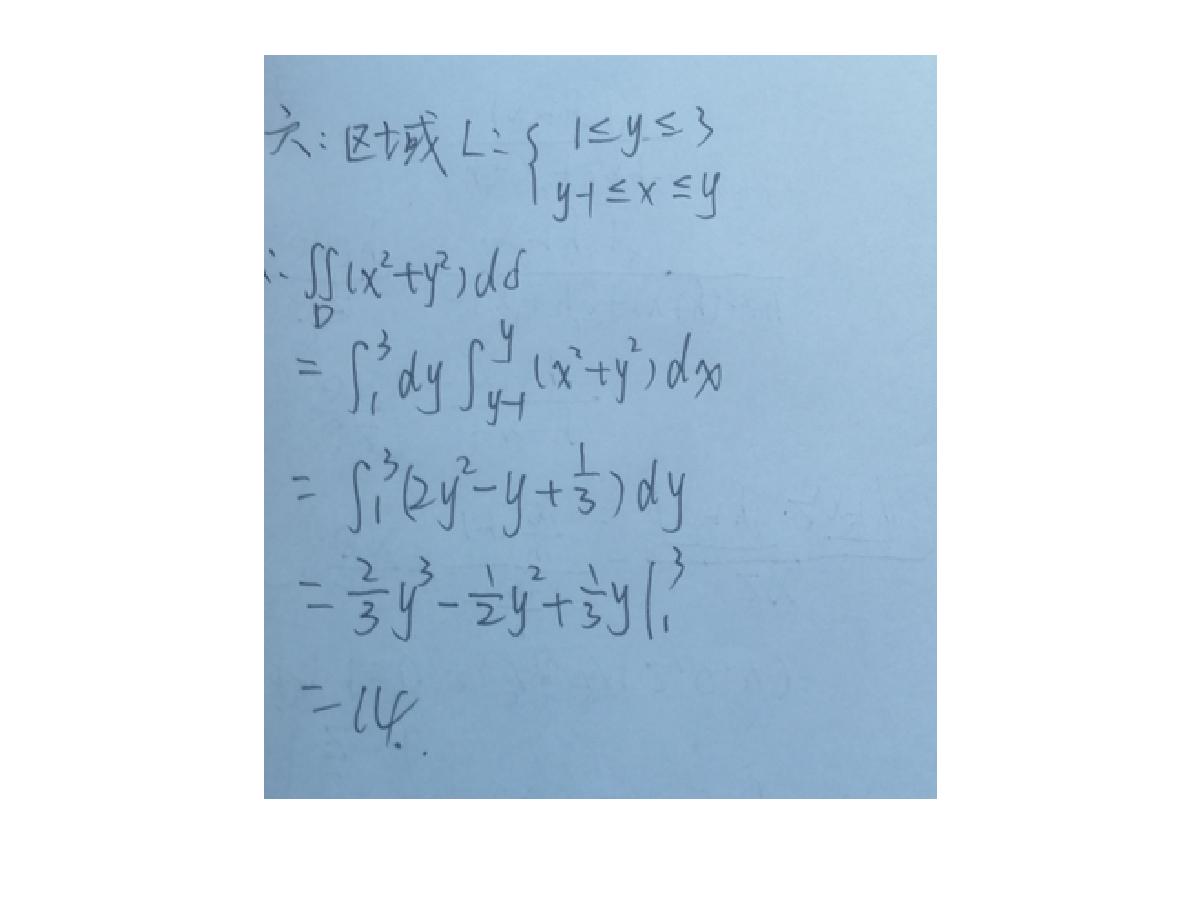 六:区域L:{ 1≤y≤3
y-1≤x≤y
∴ ∬_D (x²+y²)dδ
= ∫₁³dy∫_{y-1}^{y}(x²+y²)dx
= ∫₁³(2y²-y+1/3)dy
= 2/3y³-1/2y²+1/3y|₁³
=14.